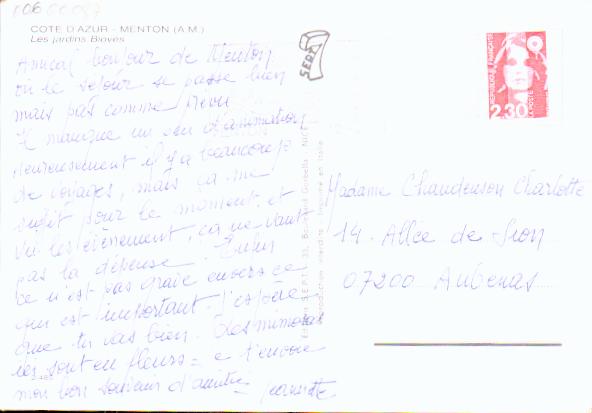 006 00087
COTE D'AZUR - MENTON (A.M.)
Les jardins Biovès
Amical bonjour de Menton
où le séjour se passe bien
mais pas comme prévu
Il manque un peu d'animation
heureusement il y a beaucoup
de voyages, mais ça me
suffit pour le moment et
vu les évènement, ça ne vaut
pas la dépense. Enfin
ce n'est pas grave envers ce
qui est important. J'espère
que tu vas bien. Les mimosas
ici sont en fleurs = e t'envoie
mon bon souvenir d'amitié
SEPT
Editions S.E.P.T. 33, Boulevard Gorbella NICE
Reproduction interdite - Imprimé en Italie
REPUBLIQUE FRANÇAISE
2,30
LA POSTE
Madame Chaudenson Charlotte
14 Allée de Sion
07200 Aubenas